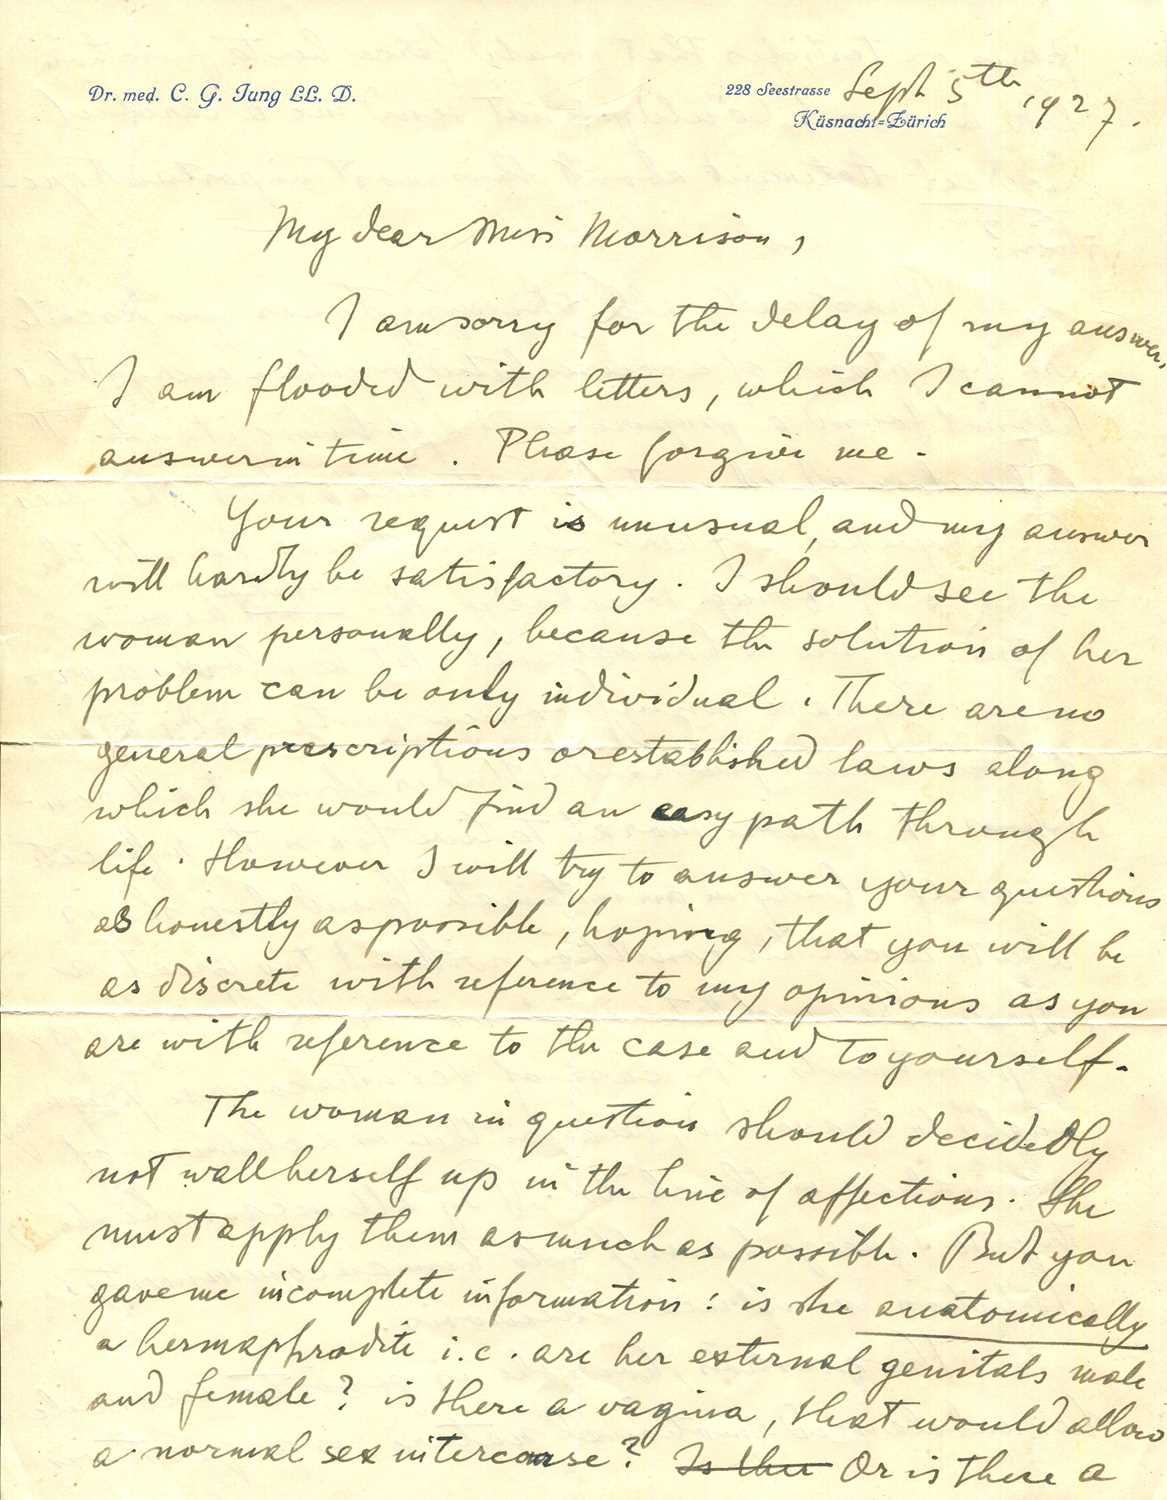 Dr. med. C. G. Jung LL. D.
228 Seestrasse Sept 5th 1927.
Küsnacht-Zürich
My dear Miss Morrison,
I am sorry for the delay of my answer,
I am flooded with letters, which I cannot
answer in time. Please forgive me.
Your request is unusual, and my answer
will hardly be satisfactory. I should see the
woman personally, because the solution of her
problem can be only individual. There are no
general prescriptions or established laws along
which she would find an easy path through
life. However I will try to answer your questions
as honestly as possible, hoping, that you will be
as discrete with reference to my opinions as you
are with reference to the case and to yourself.
The woman in question should decidedly
not wall herself up in the line of affections. She
must apply them as much as possible. But you
gave me incomplete information: is she anatomically
a hermaphrodite i.e. are her external genitals male
and female? is there a vagina, that would allow
a normal sex intercourse? Is there Or is there a